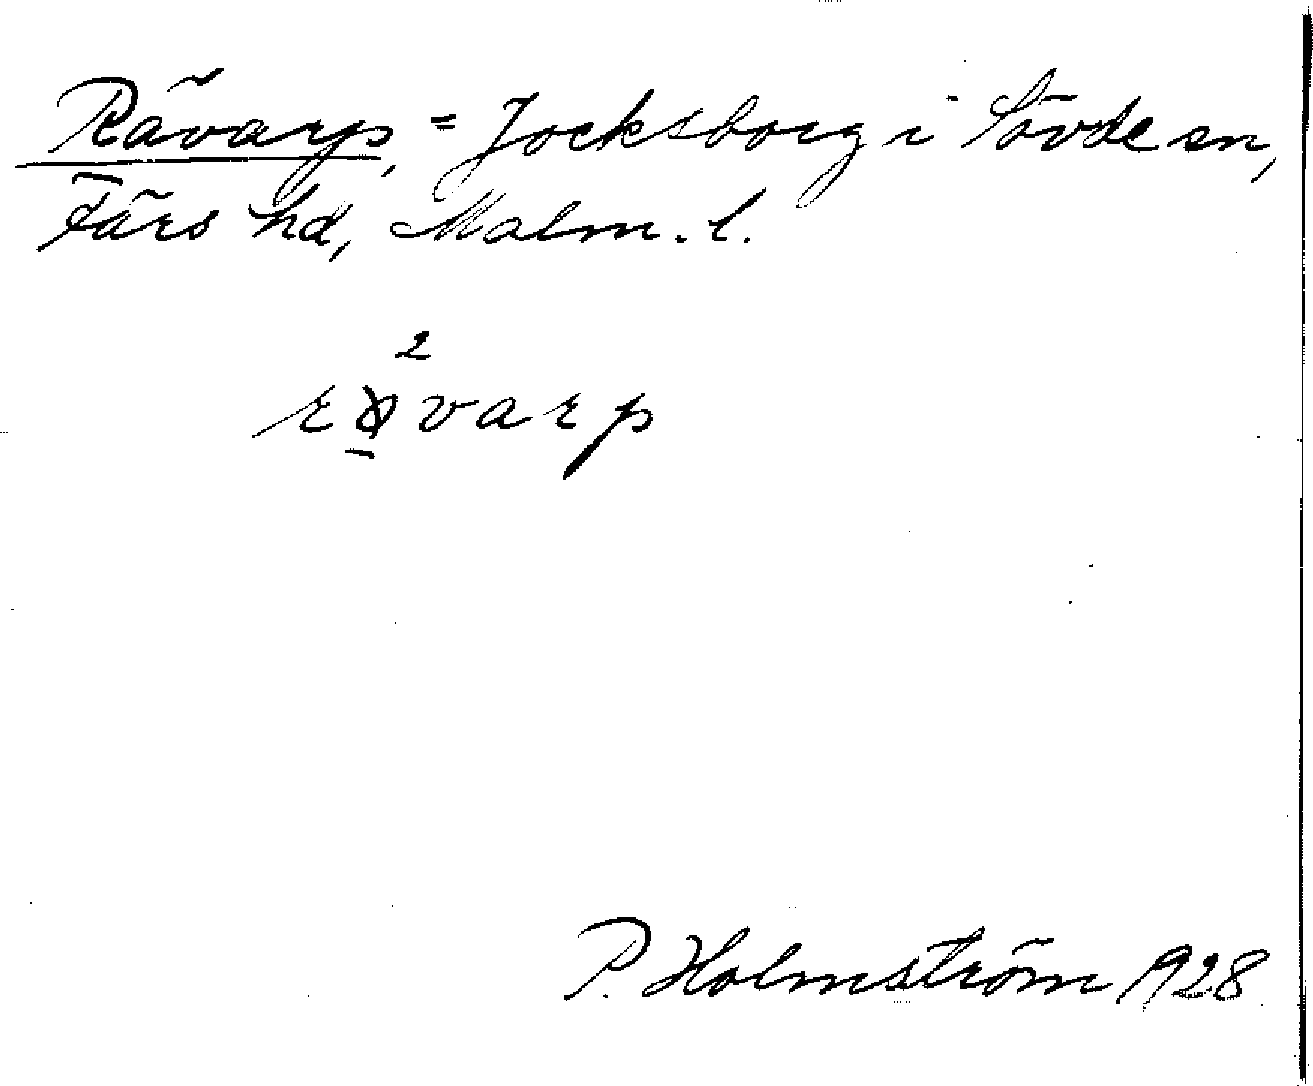 Rävarp, = Jocksborg i Sövde sn,
Färs hd, Malm. l.
2
rävarp
P. Holmström 1928